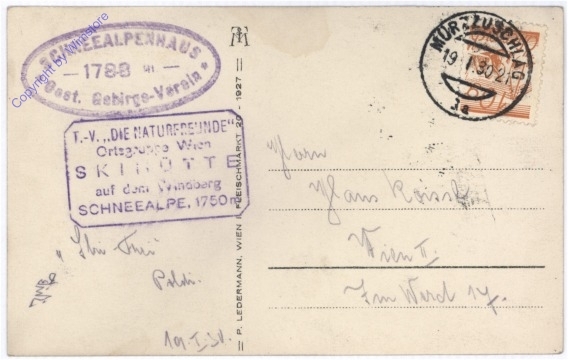 SCHNEEALPENHAUS
— 1788 m —
Oest. Gebirgs-Verein
Copyright by Wnrstore
T.-V. „DIE NATURFREUNDE"
Ortsgruppe Wien
SKIHÜTTE
auf dem Windberg
SCHNEEALPE, 1750
Poldi
19.I.30.
P. LEDERMANN, WIEN I, FLEISCHMARKT 20 - 1927
MÜRZZUSCHLAG
19. I. 30 - 21
3a
Herrn
Hans
Wien II.
Im Werd 17.